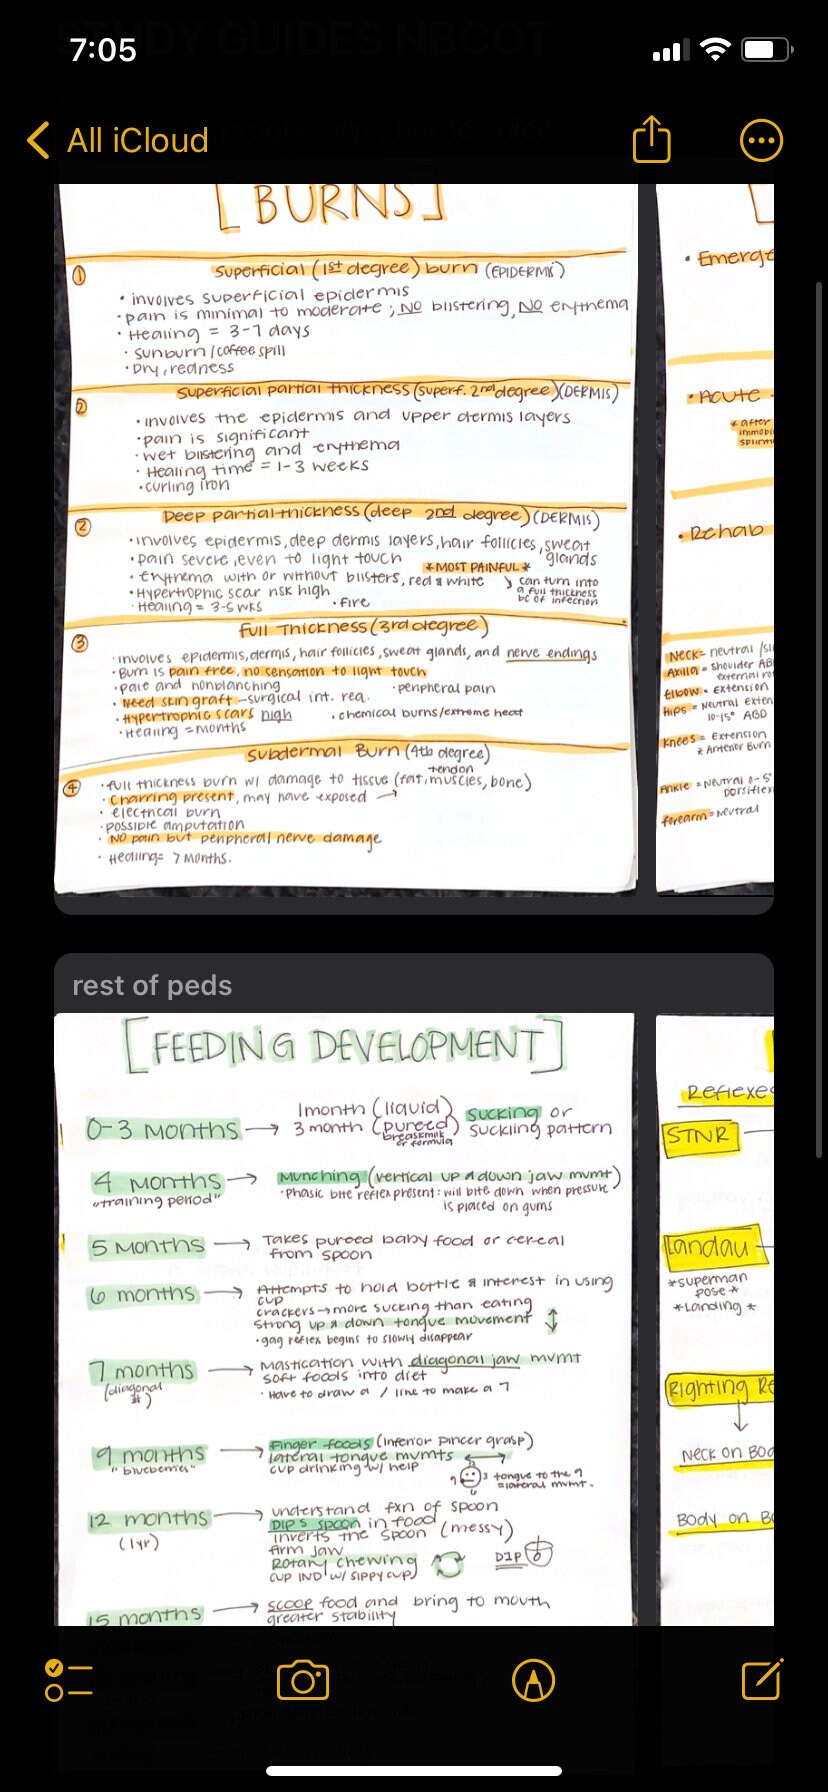 STUDY GUIDES NBCOT
7:05
All iCloud
[BURNS]
① Superficial (1st degree) burn (EPIDERMIS)
• involves superficial epidermis
• pain is minimal to moderate; NO blistering, NO erythema
• Healing = 3-7 days
• sunburn/coffee spill
• Dry, redness
② Superficial partial thickness (superf. 2nd degree) (DERMIS)
• involves the epidermis and upper dermis layers
• pain is significant
• wet blistering and erythema
• Healing time = 1-3 weeks
• curling iron
② Deep partial thickness (deep 2nd degree) (DERMIS)
• involves epidermis, deep dermis layers, hair follicles, sweat glands
• pain severe, even to light touch *MOST PAINFUL*
• erythema with or without blisters, red & white ↘ can turn into a full thickness bc of infection
• Hypertrophic scar risk high
• Healing = 3-5 wks • fire
③ Full Thickness (3rd degree)
• involves epidermis, dermis, hair follicles, sweat glands, and nerve endings
• Burn is pain free, no sensation to light touch
• pale and nonblanching • peripheral pain
• Need skin graft - surgical int. req.
• Hypertrophic scars high • chemical burns/extreme heat
• Healing = months
Subdermal Burn (4th degree)
④ • full thickness burn w/ damage to tissue (fat, muscles, bone)
• Charring present, may have exposed → tendon
• electrical burn
• possible amputation
• NO pain but peripheral nerve damage
• Healing = 7 months.
• Emerge
• Acute
* after
immobi
splint
• Rehab
Neck = neutral /sl
Axilla = shoulder AB
external ro
Elbow = Extension
Hips = Neutral exten
10-15° ABD
Knees = Extension
* Anterior Burn
Ankle = Neutral 0-5°
Dorsiflex
forearm = Neutral
rest of peds
[FEEDING DEVELOPMENT]
0-3 months → 1 month (liquid) sucking or
3 month (pureed) suckling pattern
breastmilk or formula
4 months → Munching (vertical up & down jaw mvmt)
"training period" • phasic bite reflex present: will bite down when pressure
is placed on gums
5 months → Takes pureed baby food or cereal
from spoon
6 months → Attempts to hold bottle & interest in using
cup
crackers → more sucking than eating
strong up & down tongue movement ↕
• gag reflex begins to slowly disappear
7 months → Mastication with diagonal jaw mvmt
(diagonal #) soft foods into diet
• Have to draw a / line to make a 7
9 months → Finger foods (inferior pincer grasp)
"blueberries" lateral tongue mvmts ↔
cup drinking w/ help
9 tongue to the 9
= lateral mvmt.
12 months → understand fxn of spoon
(1yr) Dips spoon in food
inverts the spoon (messy)
firm jaw
Rotary chewing
DIP
cup IND w/ sippy cup
15 months → scoop food and bring to mouth
greater stability
Reflexe
STNR
Landau
*superman
pose*
*Landing*
Righting Re
↓
Neck on Bod
Body on B